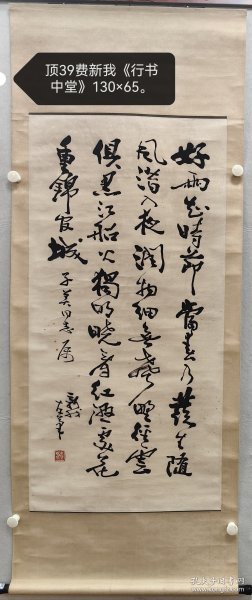 顶39费新我《行书
中堂》130×65。
好雨知时节当春乃发生随
风潜入夜润物细无声野径云
俱黑江船火独明晓看红湿处花
重锦官城 子美同志属
新我左笔